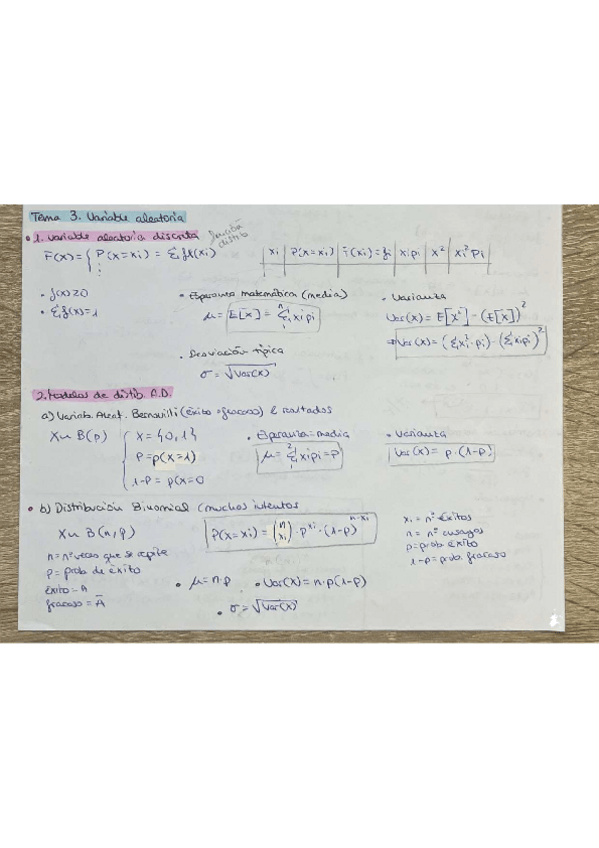 Tema 3. Variable aleatoria
• 1. Variable aleatoria discreta función distrib
F(x) = { P(X=xi) = Σ fx(xi)
⋮
xi | P(X=xi) | F(xi)= | xipi | x² | xi² pi
• f(x)≥0
• Σ f(x)=1
• Esperanza matemática (media)
μ = E[x] = Σ xipi
• Varianza
Var(x) = E[x²] - (E[x])²
⇒ Var(x) = (Σxi²·pi) - (Σxipi)²
• Desviación típica
σ = √Var(x)
2. Modelos de distib. A.D.
a) Variab. Aleat. Bernouilli (éxito-fracaso) 2 resltados
X~ B(p) { X = {0,1}
P = p(x=1)
1-P = p(x=0
• Esperanza=media
μ = Σ xipi = p
• Varianza
Var(x) = p·(1-p)
• b) Distribución Binomial (muchos intentos
X~ B(n,p)
P(x=xi) = (n xi) · p^xi · (1-p)^n-xi
n = nº veces que se repite
p = prob de éxito
éxito = A
fracaso = Ā
• μ = n·p
• Var(x) = n·p(1-p)
• σ = √Var(x)
xi = nº éxitos
n = nº ensayos
p = prob. éxito
1-p = prob. fracaso